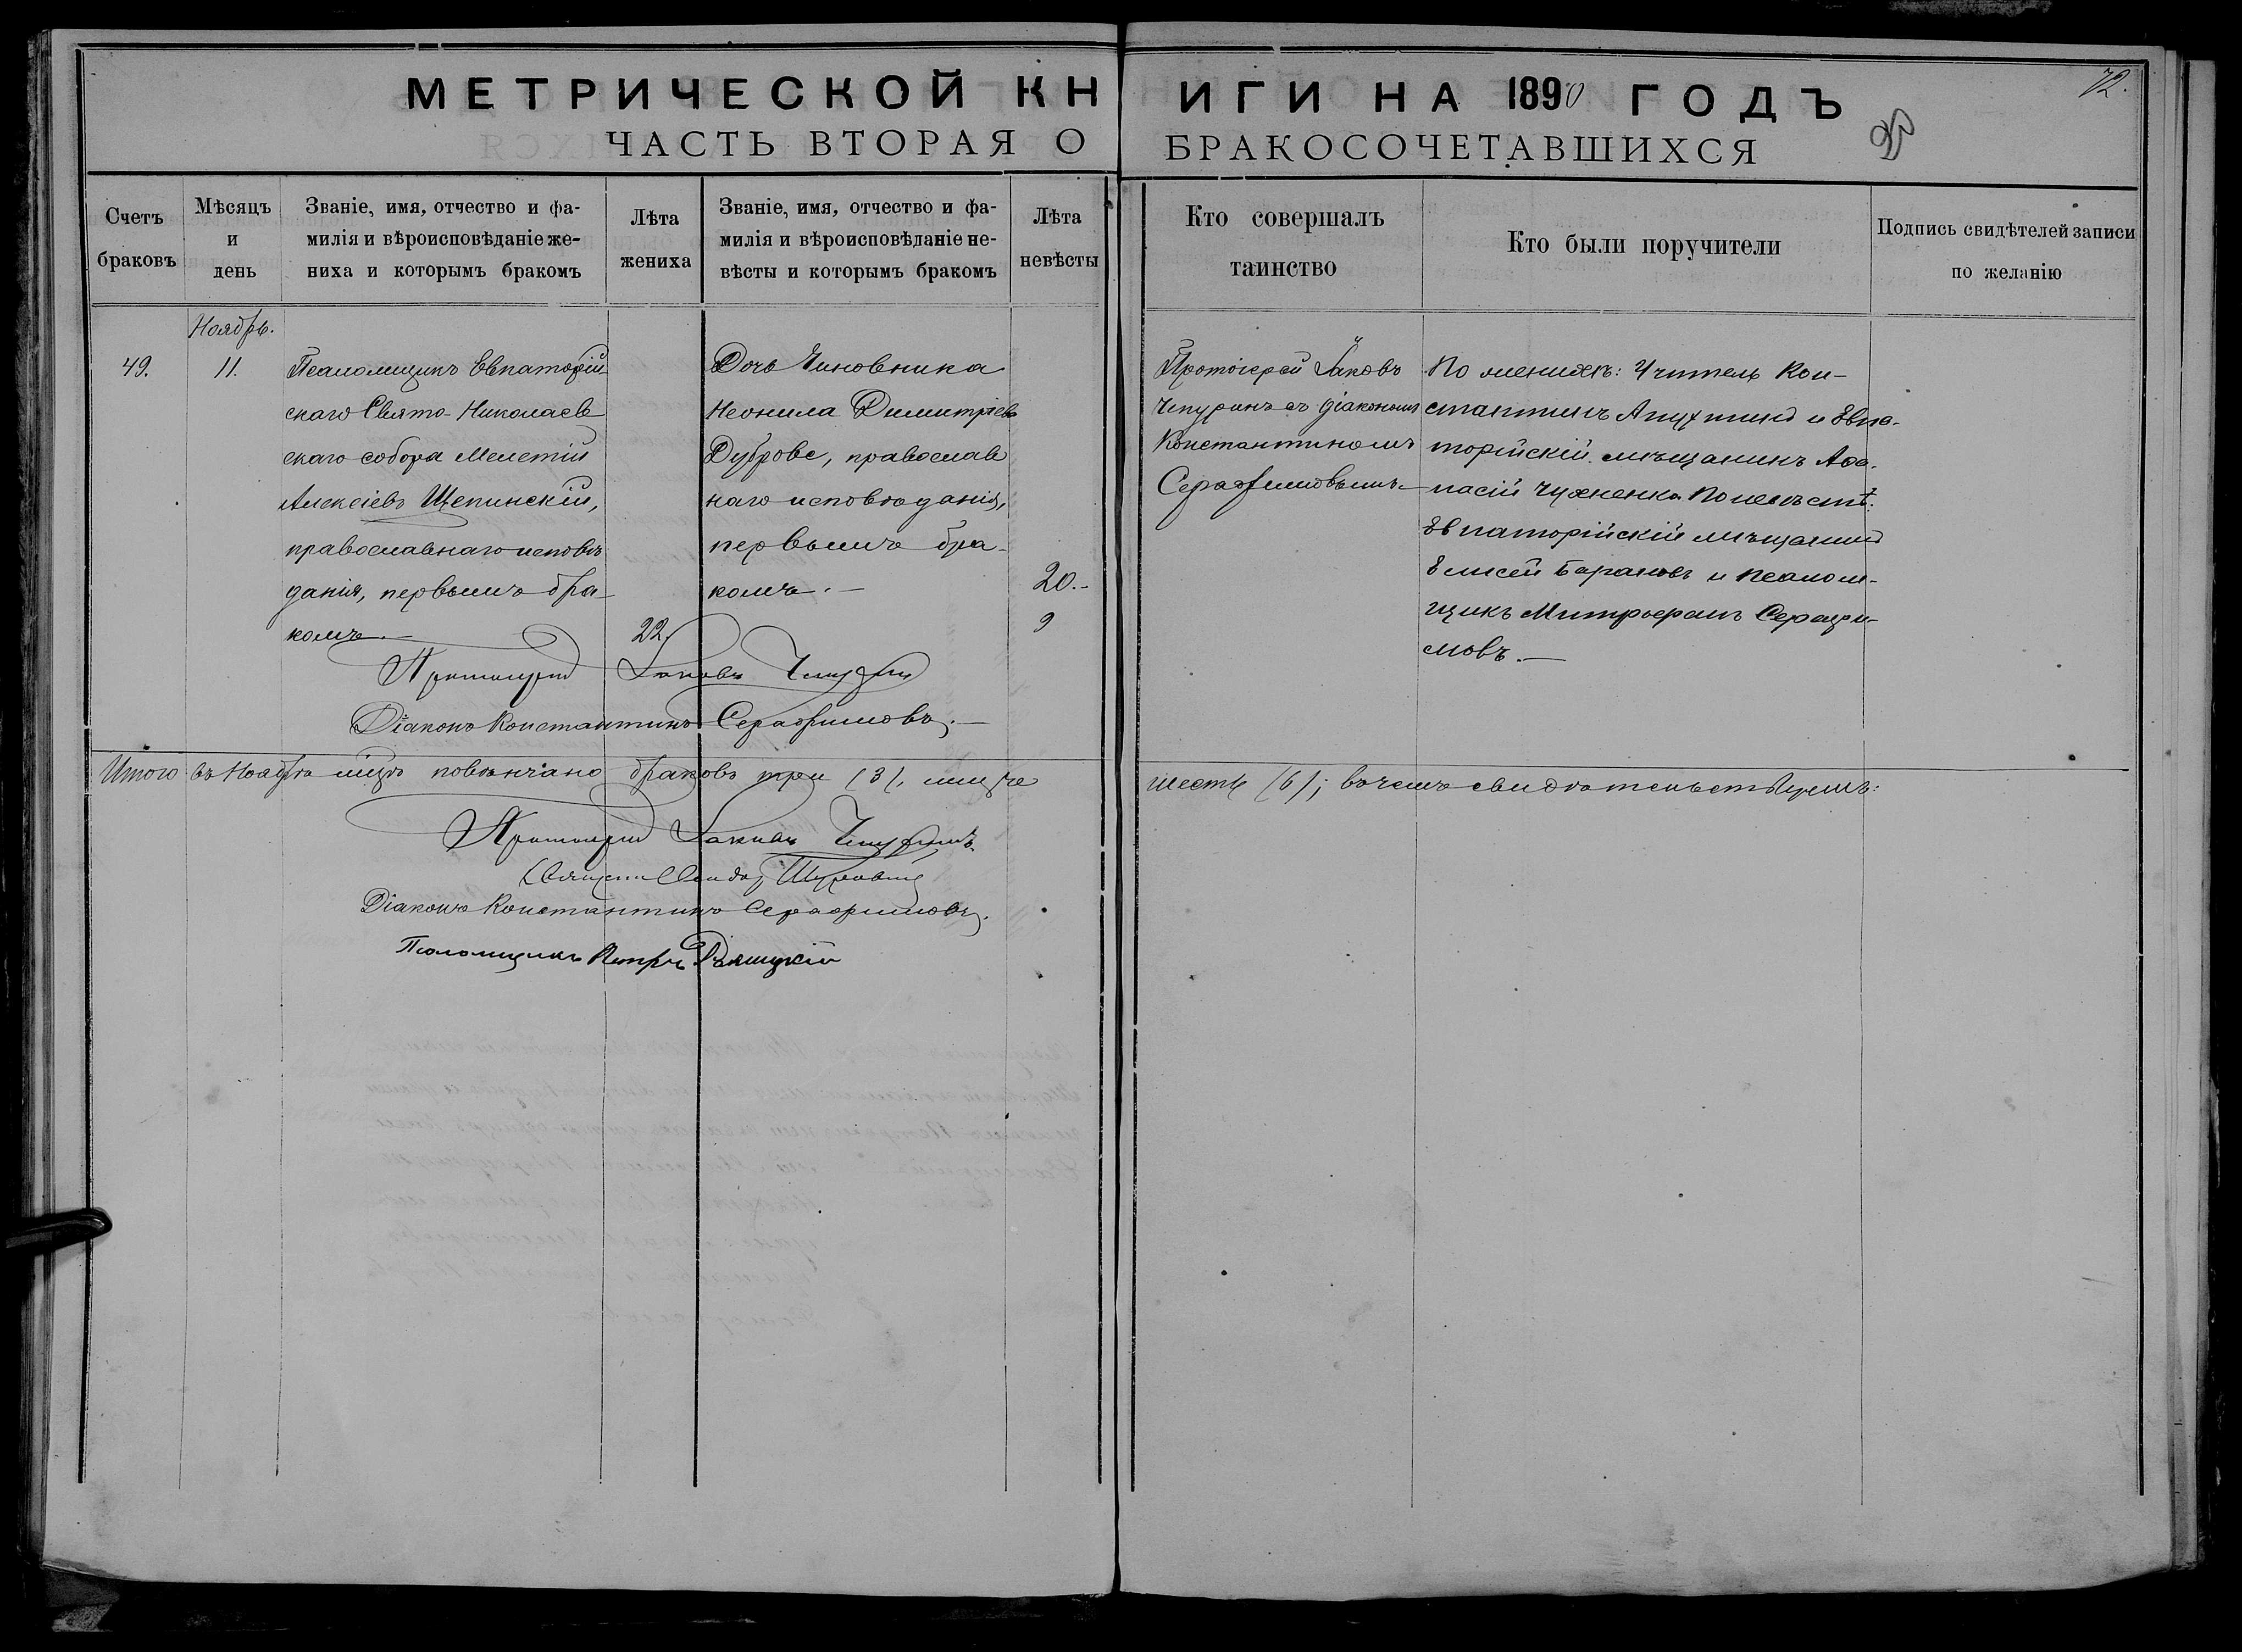 МЕТРИЧЕСКОЙ КНИГИ НА 1890 ГОДЪ
72.
ЧАСТЬ ВТОРАЯ О БРАКОСОЧЕТАВШИХСЯ
Счетъ
браковъ
Мѣсяцъ
и
день
Званіе, имя, отчество и фа-
милія и вѣроисповѣданіе же-
ниха и которымъ бракомъ
Лѣта
жениха
Званіе, имя, отчество и фа-
милія и вѣроисповѣданіе не-
вѣсты и которымъ бракомъ
Лѣта
невѣсты
Кто совершалъ
таинство
Кто были поручители
Подпись свидѣтелей записи
по желанію
49.
Ноябрь.
11.
Псаломщикъ Евпаторій-
скаго Свято-Николаев
скаго собора Мелетій
Алексіевъ Щепинскій,
православнаго исповѣ
данія, первымъ бра-
комъ.—
22.
Дочь Чиновника
Неонила Димитріев
Дуброве, православ
наго исповѣданія,
первымъ бра-
комъ.—
20.-
Протоіерей Іаковъ
Чепуринъ съ діакономъ
Константиномъ
Серафимовымъ.
По женихѣ: Учитель Кон-
стантинъ Апухтинъ и Евпа-
торійскій мѣщанинъ Афа-
насій Чухненко. По невѣстѣ:
Евпаторійскій мѣщанинъ
Елисей Барановъ и псалом-
щикъ Митрофанъ Серафи-
мовъ.—
Протоіерей Іаковъ Чепуринъ
Діаконъ Константинъ Серафимовъ.—
Итого въ Ноябрѣ мѣсяцѣ повѣнчано браковъ три (3), лицъ же шесть (6); въ чемъ свидѣтельствуемъ:
Протоіерей Іаковъ Чепуринъ.
Діаконъ Константинъ Серафимовъ.
Псаломщикъ Петръ